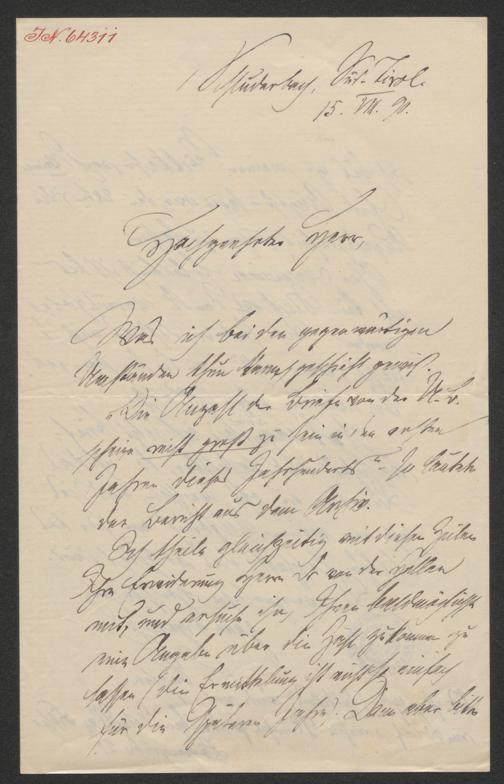 I.N. 64311
Schluderbach, Süd-Tirol.
15. VIII. 90.
Hochgeehrter Herr,
Was ich bei den gegenwärtigen
Umständen thun kann geschieht gewiß.
"Die Anzahl der Briefe von der A. v.
scheine nicht groß zu sein in den ersten
Jahren dieses Jahrhunderts" - So lautete
der Bericht aus dem Archiv.
Ich theile gleichzeitig mit diesen Zeilen
Ihre Erwiderung Herrn Dr von der Hellen
mit, und ersuche ihn, Ihnen baldmöglichst
eine Angabe über die Zahl zukommen zu
lassen (die Ermittelung ist nicht so einfach
für die späteren Jahre). Dann aber